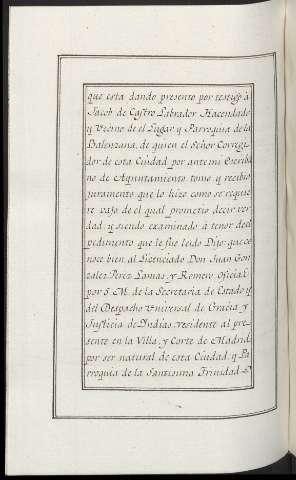 que esta dando presentó por testigo á
Jacob de Castro Labrador Hacendado
y Vecino de el Lugar y Parroquia de la
Balenzana, de quien el Señor Corregi-
dor de esta Ciudad por ante mi Escriba
no de Ayuntamiento tomo y recibio
juramento que lo hizo como se requie
re vajo de el qual prometio decir ver-
dad, y siendo examinado á tenor de el
pedimento que le fue leido Dijo: que co
noce bien al Licenciado Don Juan Gon
zalez Perez Lamas, y Romero Oficial
por S. M. de la Secretaria de Estado y
del Despacho Universal de Gracia y
Justicia de Indias, residente al pre-
sente en la Villa, y Corte de Madrid
por ser natural de esta Ciudad, y Pa
rroquia de la Santisima Trinidad